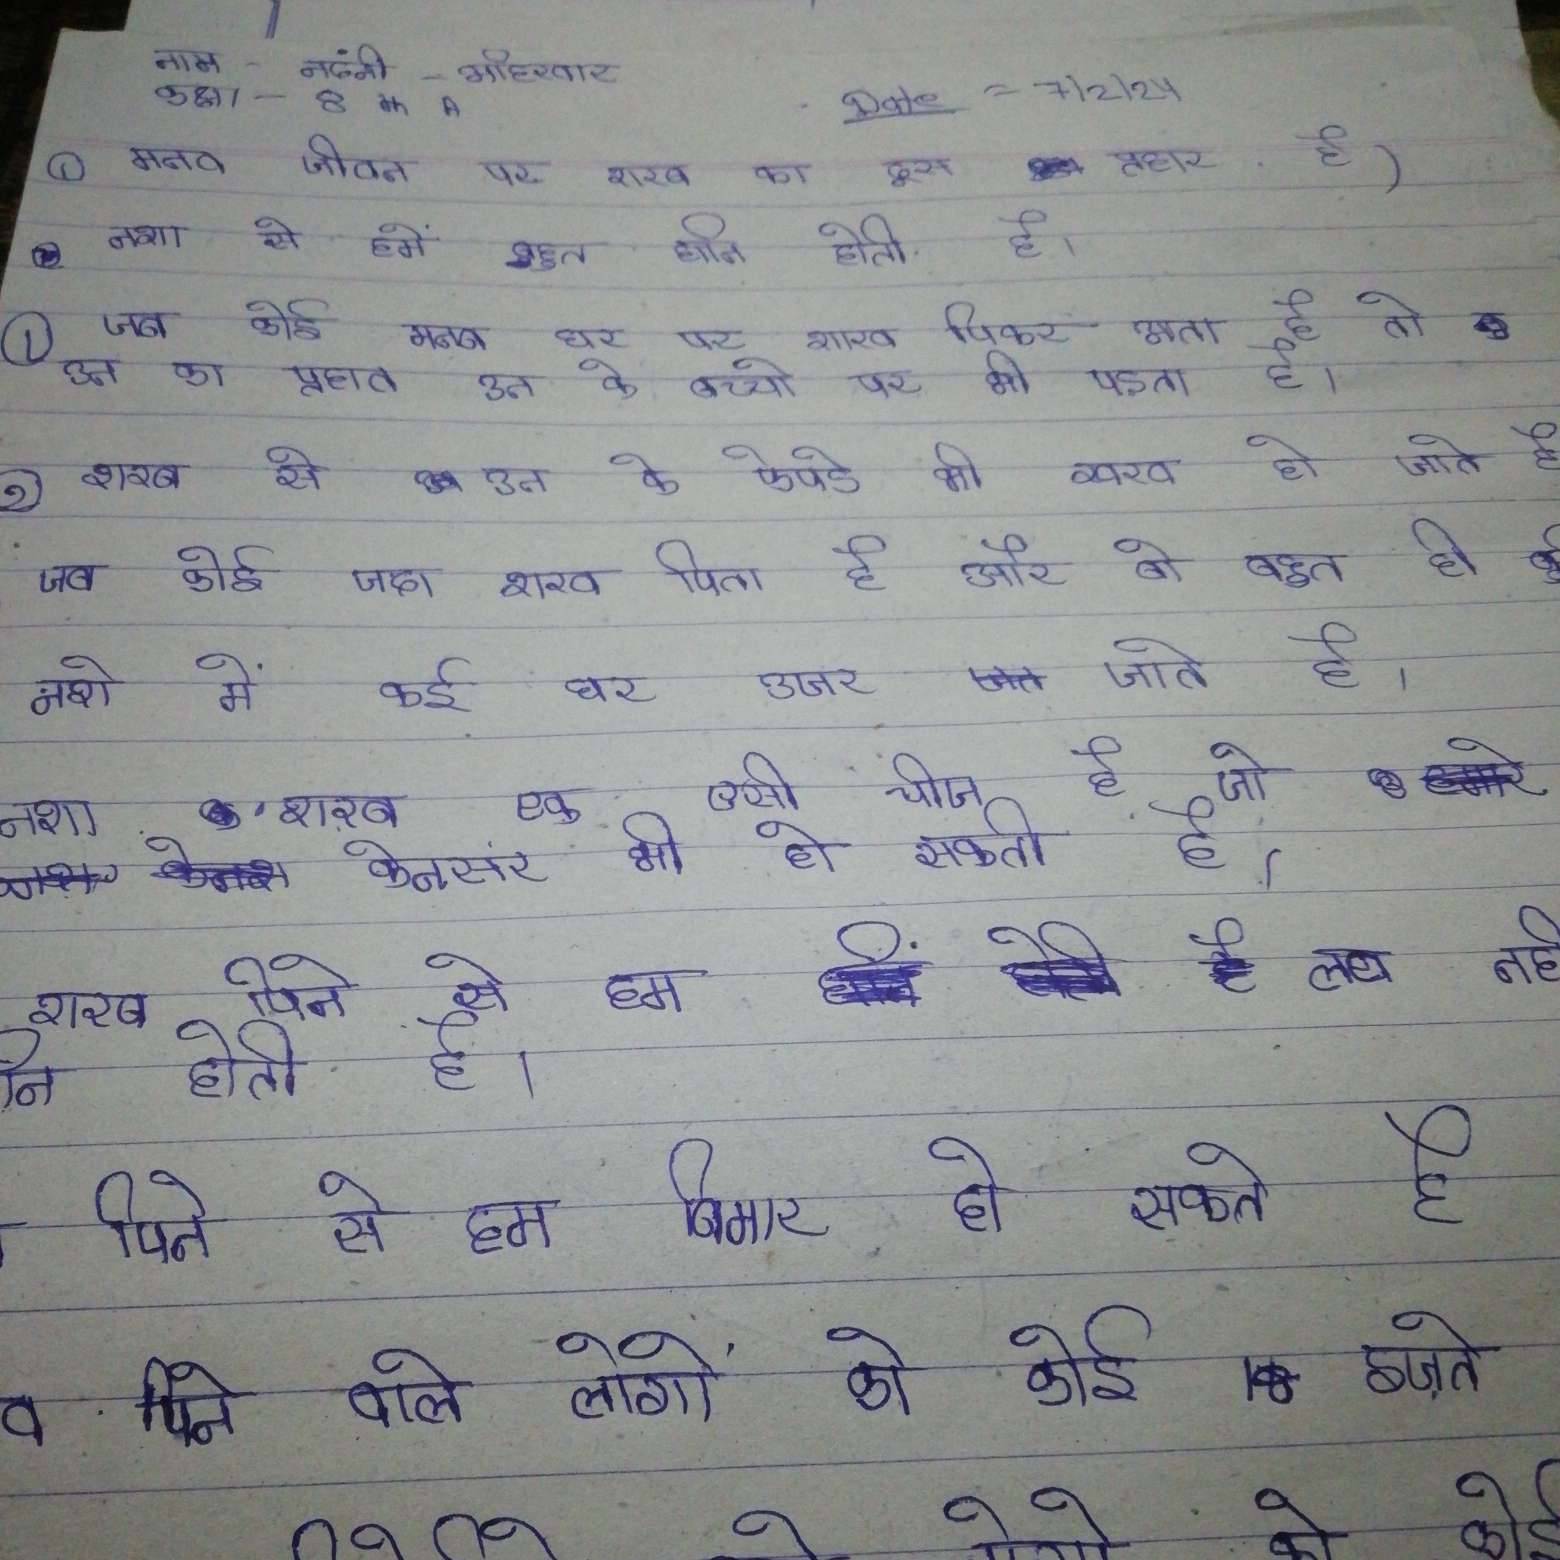 नाम - नदंनी - अहिरवार
कक्षा - 8 th A Date = 7/2/24
① मनव जीवन पर शरब का प्रहार है)
नशा से हमें बहुत हानि होती है।
① जब कोई मनव घर पर शारब पिकर अता है तो
उन का प्रहाव उन के बच्चो पर भी पडता है।
2) शरब से उन के फेपडे भी खरब हो जाते है
जब कोई जदा शरब पिता है और वो बहुत ही
नशे में कई घर उजर जाते है।
नशा शरब एक एसी चीज है जो
केनसंर भी हो सकती है।
शरब पिने से हम लाभ नही
नि होती है।
पिने से हम बिमार हो सकते है
ब पिने वाले लोगों को कोई इज़ते
को कोई